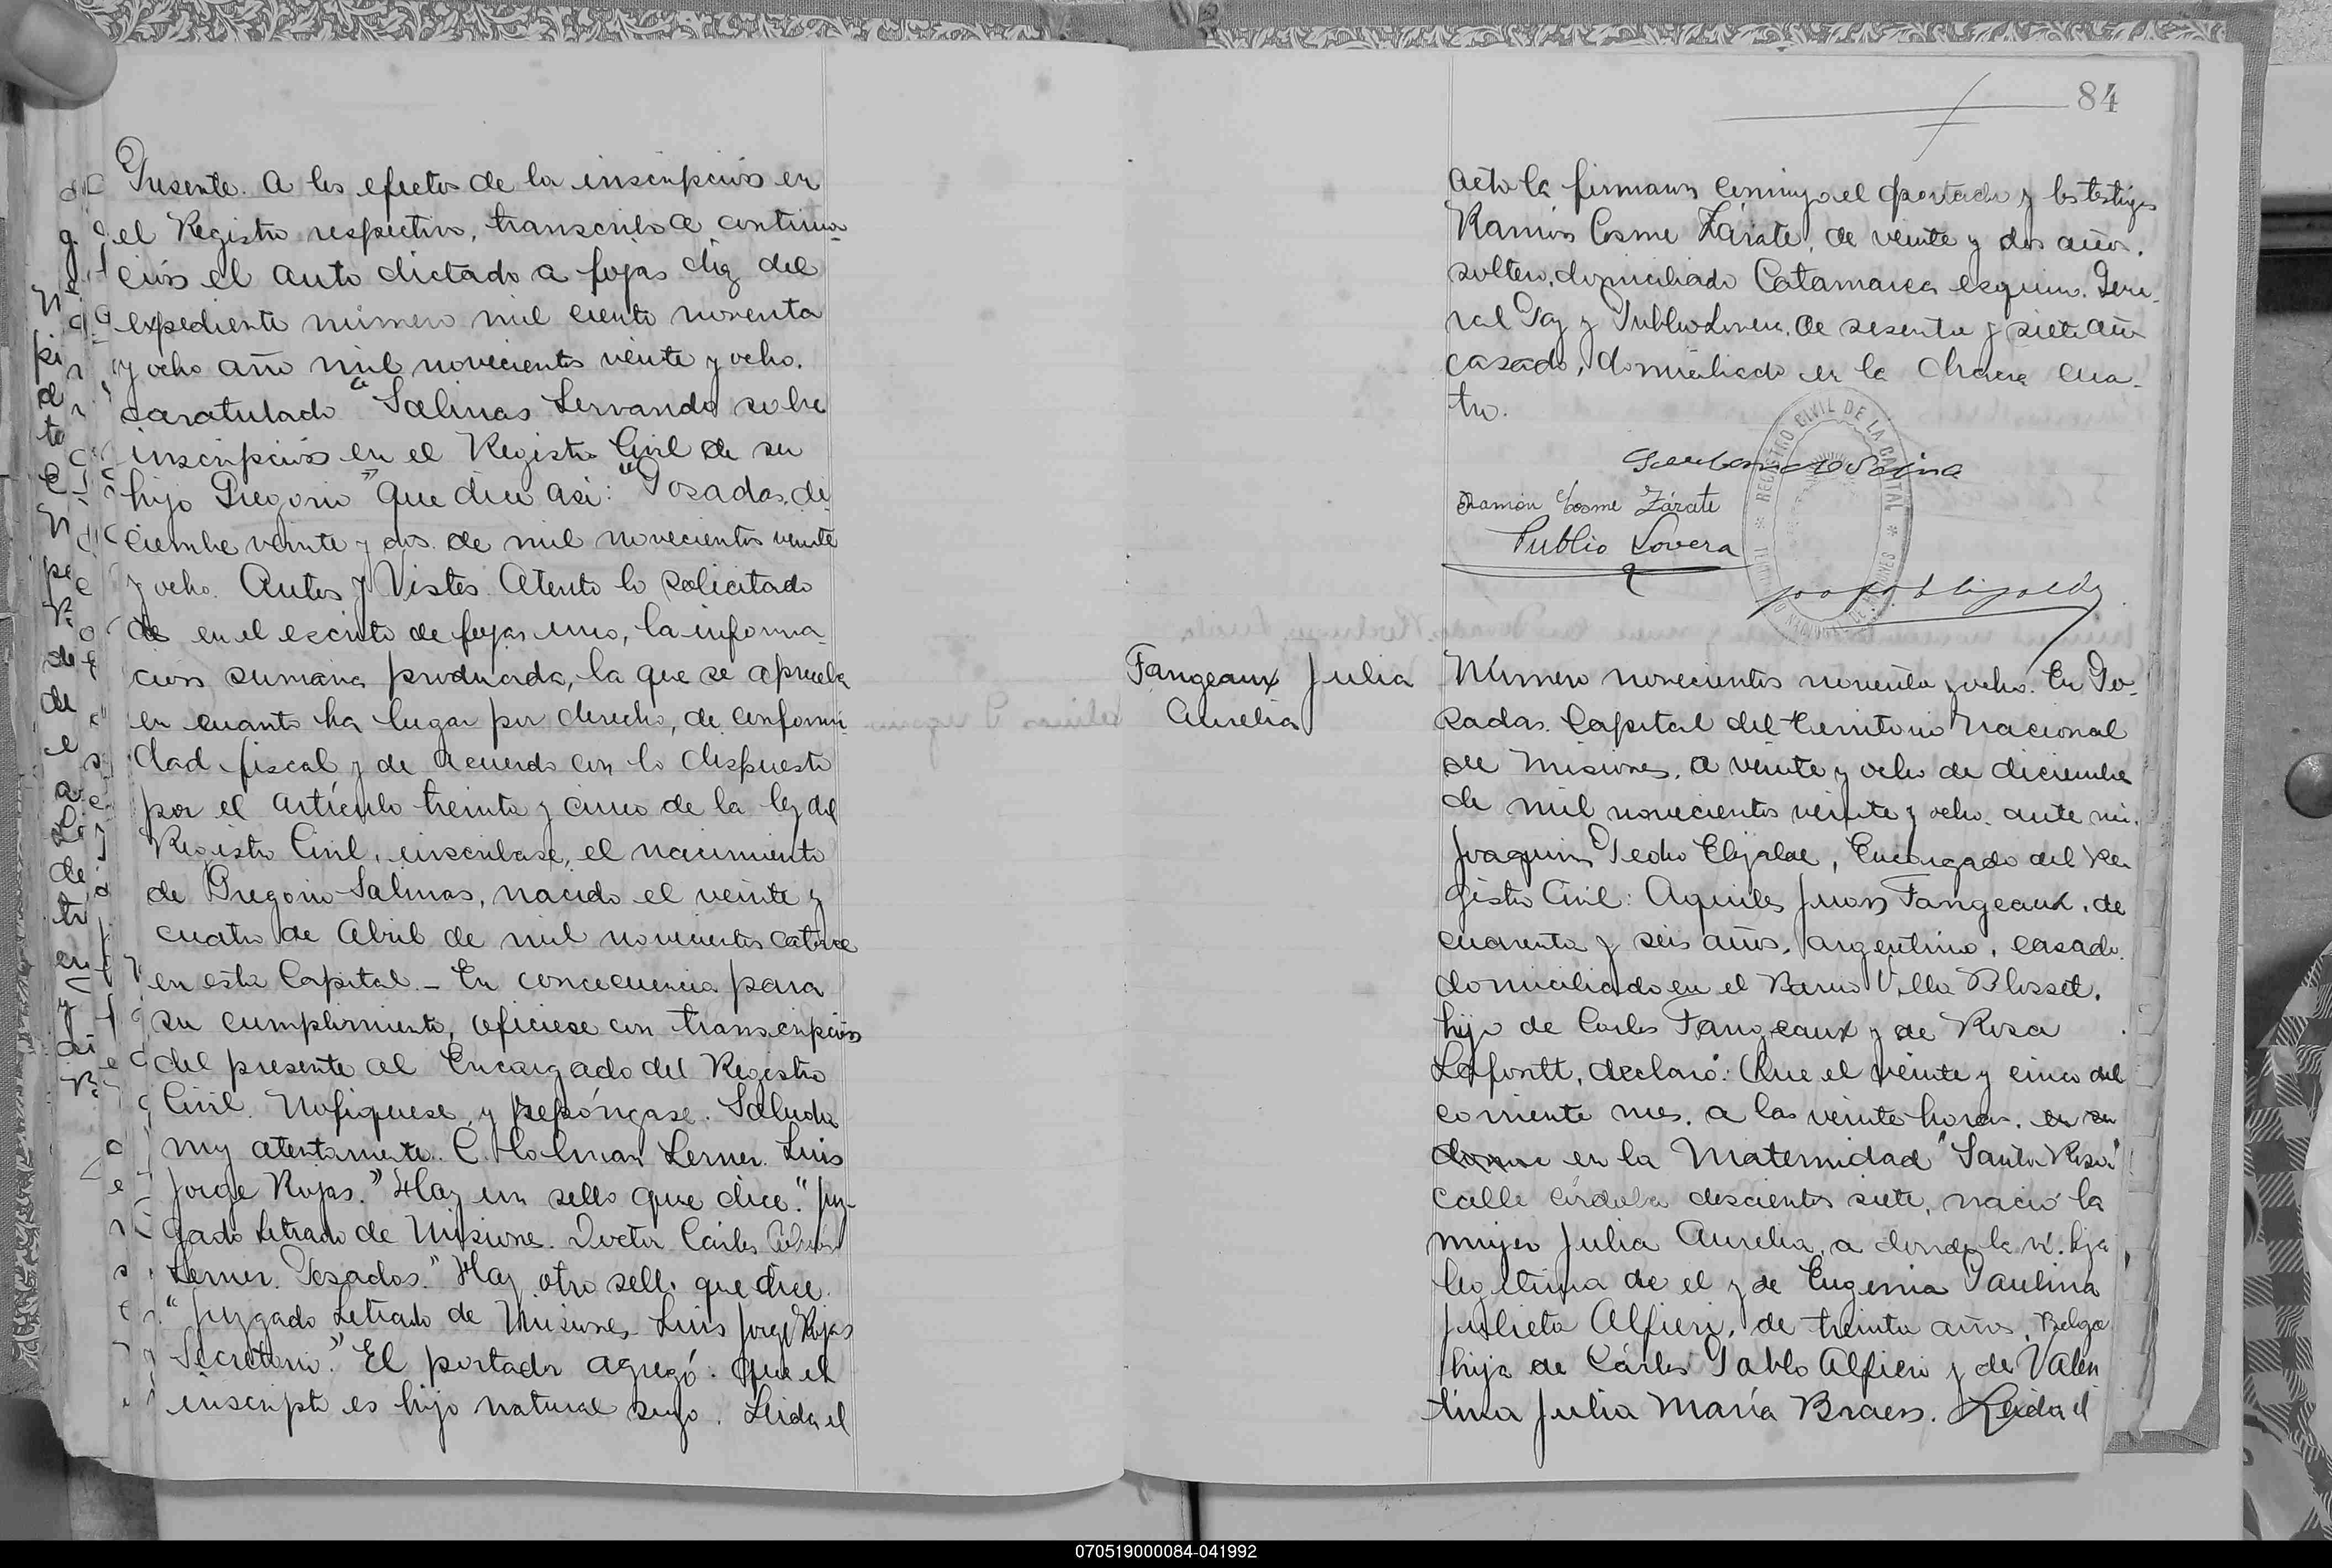 Presente. A los efectos de la inscripción en
el Registro respectivo, transcribo a continua-
ción el auto dictado a fojas diez del
expediente número mil ciento noventa
y ocho año mil novecientos veinte y ocho.
caratulado "Salinas Servando sobre
inscripción en el Registro Civil de su
hijo Gregorio" que dice asi: "Posadas, di-
ciembre veinte y dos de mil novecientos veinte
y ocho. Autos y Vistos. Atento lo solicitado
en el escrito de fojas uno, la informa-
ción sumaria producida, la que se aprueba
en cuanto ha lugar por derecho, de conformi
dad fiscal y de acuerdo con lo dispuesto
por el artículo treinta y cinco de la ley del
Registro Civil, inscríbase, el nacimiento
de Gregorio Salinas, nacido el veinte y
cuatro de Abril de mil novecientos catorce
en esta Capital. - En concecuencia para
su cumplimiento, ofíciese con transcripción
del presente al Encargado del Registro
Civil. Nofiquese y repóngase. Saluda
muy atentamente. C. Holman Lerner. Luis
Jorge Rojas." Hay un sello que dice: "Juz-
gado Letrado de Misiones. Doctor Carlos
Lerner. Posadas." Hay otro sello que dice.
"Juzgado Letrado de Misiones Luis Jorge Rojas
Secretario." El portador agregó: Que el
inscripto es hijo natural suyo. Leida el
84
acta la firmaron conmigo el portador y los testigos
Ramón Cosme Zárate, de veinte y dos años.
soltero, domiciliado Catamarca esquina Gene-
ral Paz y Publio Lovera, de sesenta y siete años
casado, domiciliado en la chacra cua-
tro.
Ramón Cosme Zárate
Publio Lovera
REGISTRO CIVIL DE LA CAPITAL
Fangeaux Julia
Aurelia
Número novecientos noventa y ocho. En Po-
sadas. Capital del territorio Nacional
de Misiones, a veinte y ocho de diciembre
de mil novecientos veinte y ocho. ante mi.
Joaquin Pedro Elizalde, Encargado del Re-
gistro Civil: Aquiles Juan Fangeaux, de
cuarenta y seis años, argentino, casado.
domiciliado en el Barrio Villa Blosset.
hijo de Carlos Fangeaux y de Rosa
Lafontt, declaró: Que el veinte y cinco del
corriente mes, a las veinte horas. en su
en la Maternidad "Santa Rosa"
calle Córdoba doscientos siete, nació la
mujer Julia Aurelia, a donde la vi. hija
legítima de el y de Eugenia Paulina
Julieta Alfieri, de treinta años, Belga
hija de Cárlos Pablo Alfieri y de Valen
tina Julia María Braens. Leida el
070519000084-041992